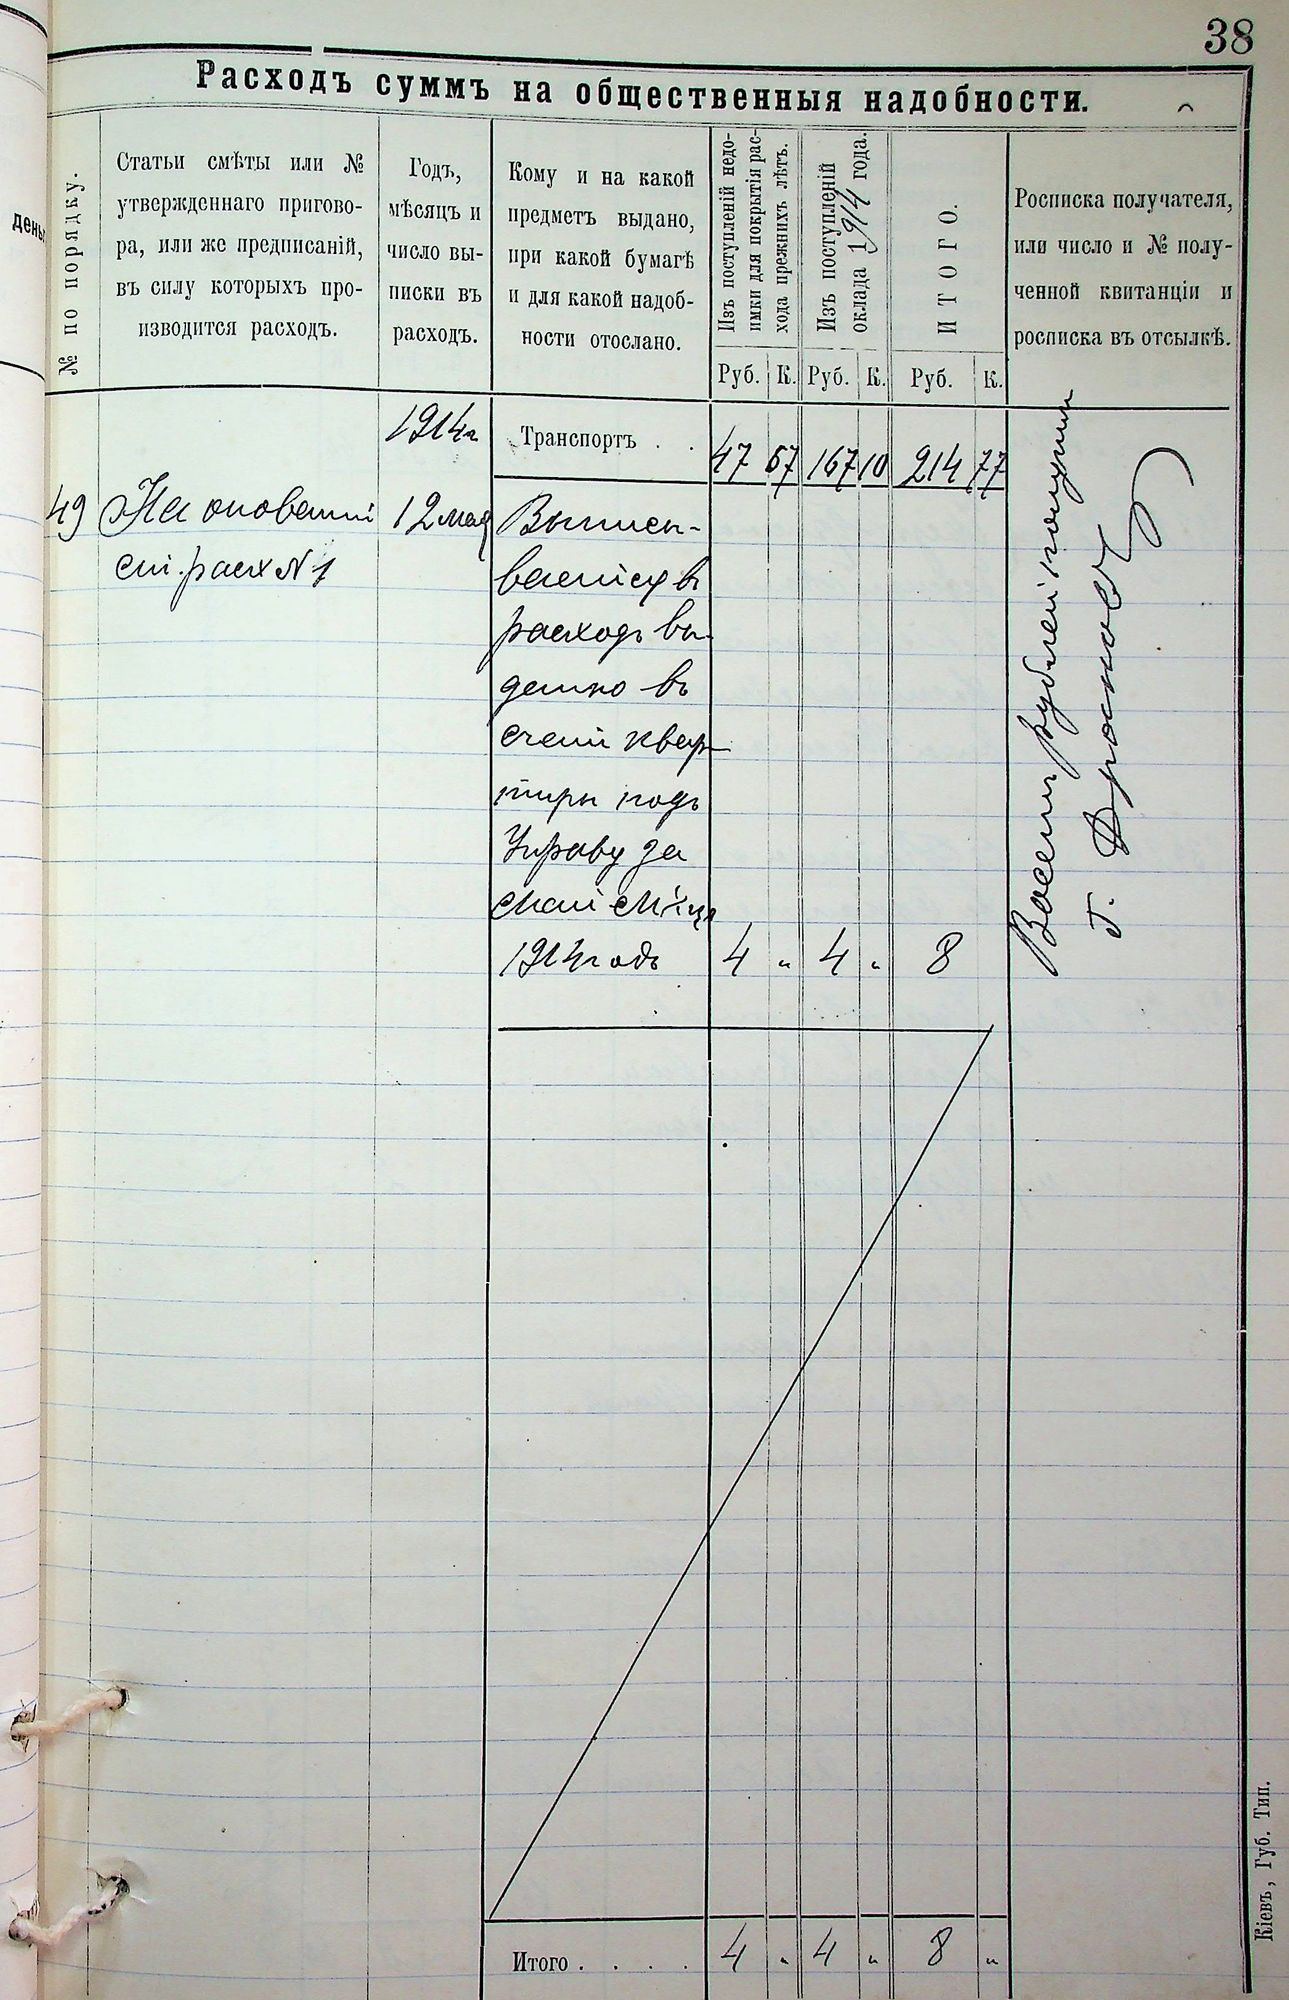 38
Расходъ суммъ на общественныя надобности.
№ по порядку.
Статьи смѣты или №
утвержденнаго пригово-
ра, или же предписаній,
въ силу которыхъ про-
изводится расходъ.
Годъ,
мѣсяцъ и
число вы-
писки въ
расходъ.
Кому и на какой
предметъ выдано,
при какой бумагѣ
и для какой надоб-
ности отослано.
Изъ поступленій недо-
имки для покрытія рас-
хода прежнихъ лѣтъ.
Изъ поступленій
оклада 1914 года.
ИТОГО.
Росписка получателя,
или число и № полу-
ченной квитанціи и
росписка въ отсылкѣ.
Руб. К. Руб. К. Руб. К.
1914г Транспортъ . . 47 67 167 10 214 77
49 На основаніи 12 мая Выписы-
ст. расх № 1 вается въ
расходъ вы-
дано въ
счетъ квар-
тиры подъ
Управу за
Май М-цъ
1914 годъ 4 „ 4 „ 8
Восемь рублей получилъ
Итого . . . . 4 „ 4 „ 8 „
Кіевъ, Губ. Тип.
день